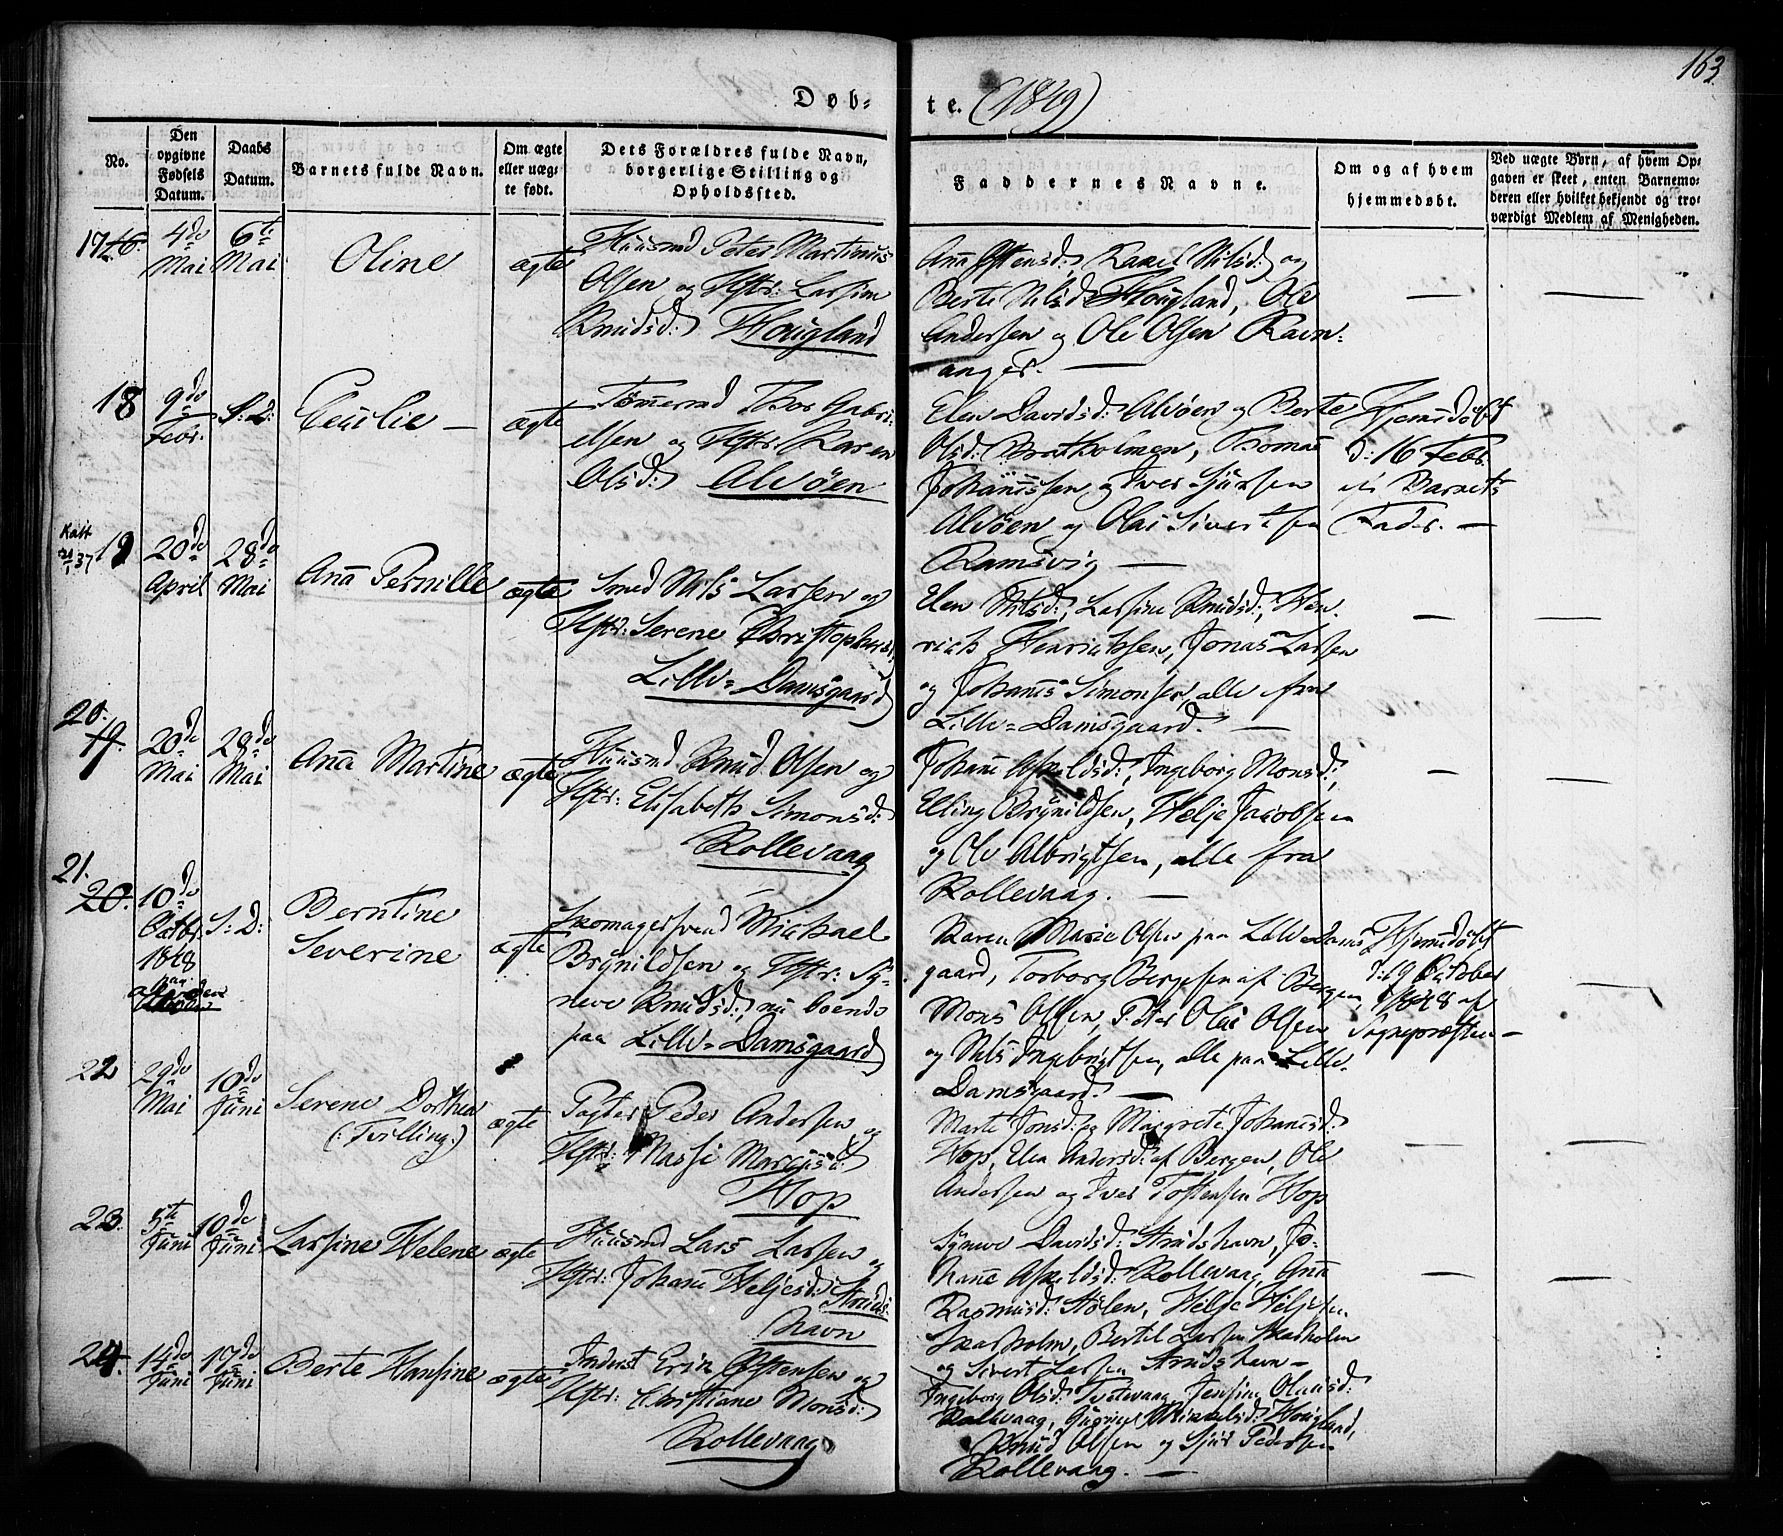 163
Døb-
te. (1849)
No.
Den
opgivne
Fødsels
Datum.
Daabs
Datum.
Barnets fulde Navn.
Om ægte
eller uæg-
te født.
Dets Forældres fulde Navn,
borgerlige Stilling og
Opholdssted.
Faddernes Navne.
Om og af hvem
hjemmedøbt.
Ved uægte Børn, af hvem Op-
gaven er skeet, enten Barnemo-
deren eller hvilket bekjendt og tro-
værdigt Medlem af Menigheden.
17 16.
4de
Mai
6te
Mai
Oline
ægte
Huusmd Peter Martinus
Olsen og Hstr: Larsine
Knudsd: Hougland
Anna Østensd:, Rael Nilsd: og
Berte Nilsd: Hougland, Ole
Andersen og Ole Olsen Ravn-
anger. —
18
9de
Febr.
S: D:
Cecilie —
ægte
Tømmermd Thos Gabri-
elsen og Hstr: Karen
Olsd: Alvøen
Elen Davidsd: Alvøen og Berte
Olsd: Bratholmen, Thomas
Johannssen og Iver Sjursen
Alvøen og Olai Sivertsen
Ramsvig —
Hjemdøbt
d: 16 Febr.
Barnets
Fader. —
19
20de
April
28de
Mai
Anna Pernille
ægte
Smed Nils Larsen og
Hstr: Serene Christophersd:
Lille-Damsgaard
Elen Nilsd:, Larsine Knudsd:, Hen-
rich Henrichsen, Jonas Larsen
og Johannes Simonsen, alle fra
Lille-Damsgaard. —
20.
19.
20de
Mai
28de
Mai
Anna Martine
ægte
Huusmd Knud Olsen og
Hstr: Elisabeth Simonsd:
Rollevaag
Johanne Askildsd:, Ingeborg Monsd:,
Elling Brynildsen, Helje Jacobsen
og Ole Albrigtsen, alle fra
Rollevaag. —
21.
20.
10de
Octbr.
1848
paa
S: D:
Berntine
Severine
ægte
Skomagersvend Michael
Brynildsen og Hstr: Sy-
neve Knudsd:, nu boende
paa Lille-Damsgaard
Karen Marie Olsen paa Lille Dams-
gaard, Torborg Bergesen af Bergen,
Mons Olsen, Peter Olai Olsen
og Nils Ingebrigtsen, alle paa Lille
Damsgaard. —
Hjemdøbt
d: 19 October
1848 af
Sognepræsten —
22
29de
Mai
10de
Juni
Serene Dorthea
(: Tvilling :)
ægte
Pagter Peder Andersen og
Hstr: Massi Marcusd:
Hop
Marte Jonsd: og Margrete Johannsd:
Hop, Elen Andersd: af Bergen, Ole
Andersen og Iver Tostensen Hop
23.
5te
Juni
10de
Juni
Larsine Helene
ægte
Huusmd Lars Larsen og
Hstr: Johanne Heljesd: Struds-
havn
Syneve Davidsd: Strudshavn, Jo-
hanne Askildsd: Rollevaag, Anna
Rasmusd: Stølen, Helje Heljesen
Skarholm, Bertil Larsen Skarholm
og Sivert Larsen Strudshavn —
24.
14de
Juni
17de
Juni
Berte Hansine
ægte
Inderst Erik Østensen og
Hstr: Christiane Monsd:
Rollevaag
Ingeborg Olsd: Tveitevaag, Jensine Olausd:
Rollevaag, Mikkelsd: Hougland,
Knud Olsen og Sjur Pedersen
Rollevaag. —